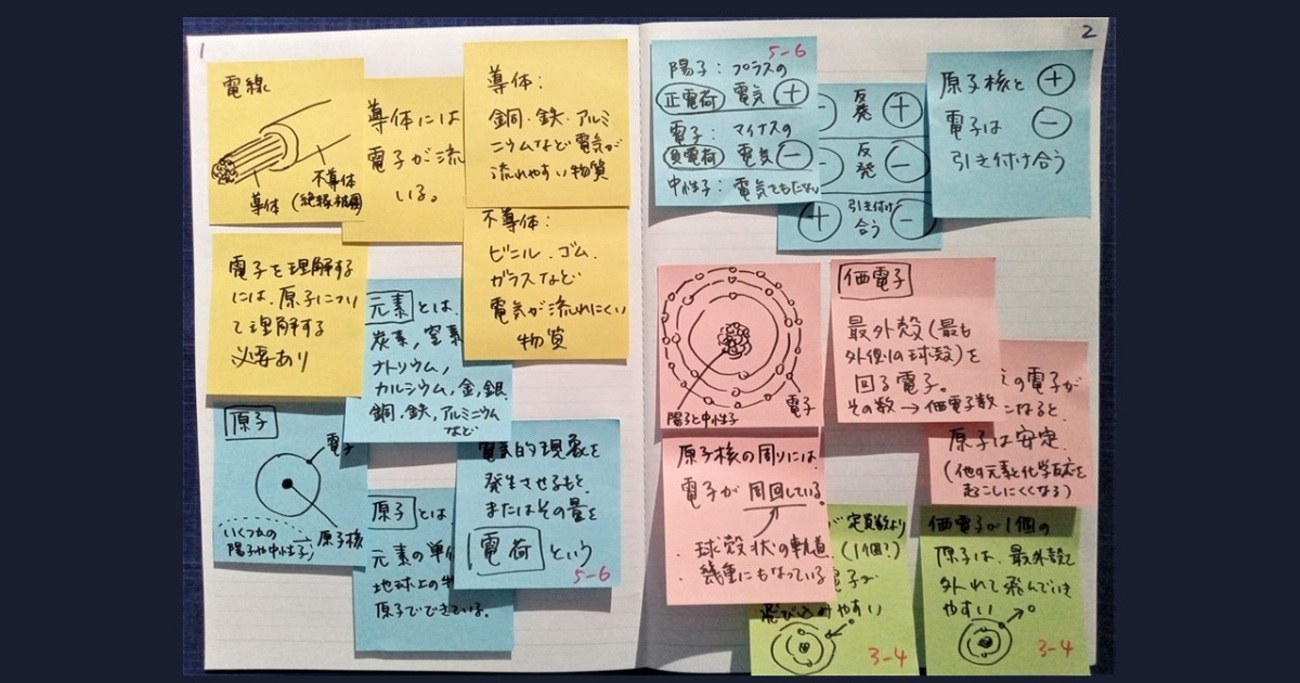 1
電線
導体
不導体
(絶縁被膜)
導体には
電子が流
いる。
導体:
銅・鉄・アルミ
ニウムなど電気が
流れやすい物質
不導体:
ビニル・ゴム・
ガラスなど
電気が流れにくい
物質
電子を理解する
には、原子につい
て理解する
必要あり
元素とは、
炭素,窒素
ナトリウム,
カルシウム,金,銀
銅,鉄,アルミニウム
など
原子
電子
原子核
いくつかの
陽子や中性子
原子とは、
元素の単
地球上の
原子でできている。
電気的現象を
発生させるもと、
またはその量を
電荷という
5-6
2
5-6
陽子:プラスの
正電荷 電気 +
電子:マイナスの
負電荷 電気 -
中性子:電気をもたない
- 反発 +
- 反発 -
+ 引き付け合う -
原子核と +
電子は -
引き付け合う
陽子と中性子
電子
価電子
最外殻(最も
外側の球殻)を
回る電子。
その数→価電子数
の電子が
になると、
原子は安定
(他の元素と化学反応を
起こしにくくなる)
原子核の周りには
電子が周回している。
・球殻状の軌道
・幾重にもなっている
が定員数より
(1個?)
電子が
飛び込みやすい
3-4
価電子が1個の
原子は、最外殻
外れて飛んでいき
やすい
3-4